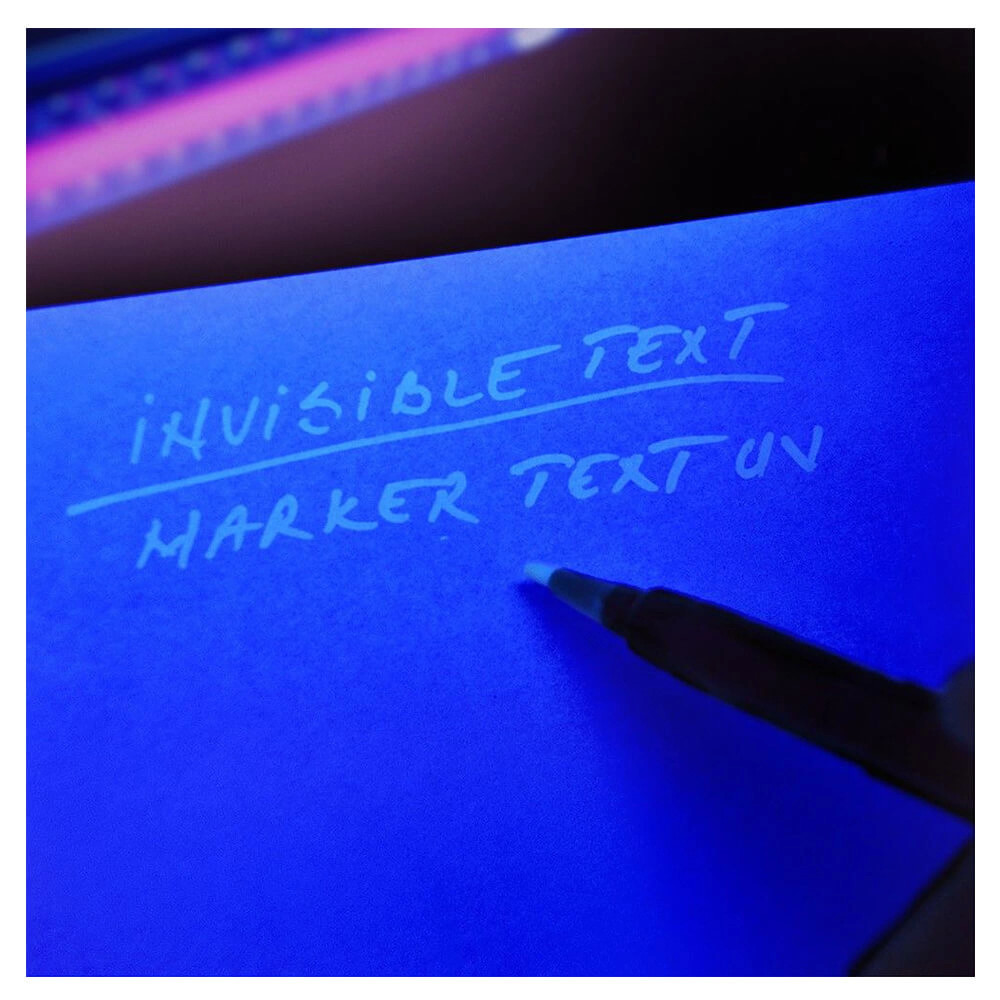 iNViSiBLE TEXT
MARKER TEXT UV